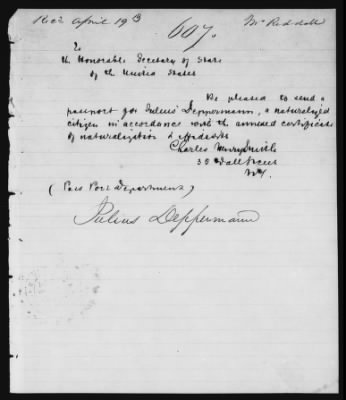 April 19
607.
To
the Honorable Secretary of State
of the United States
Be pleased to send a
passport for Julius Deppermann, a naturalized
citizen in accordance with the annexed certificate
of naturalization & affidavit
Charles Henry
30 Wall Street
N.Y.
(Pass Port Department)
Julius Deppermann